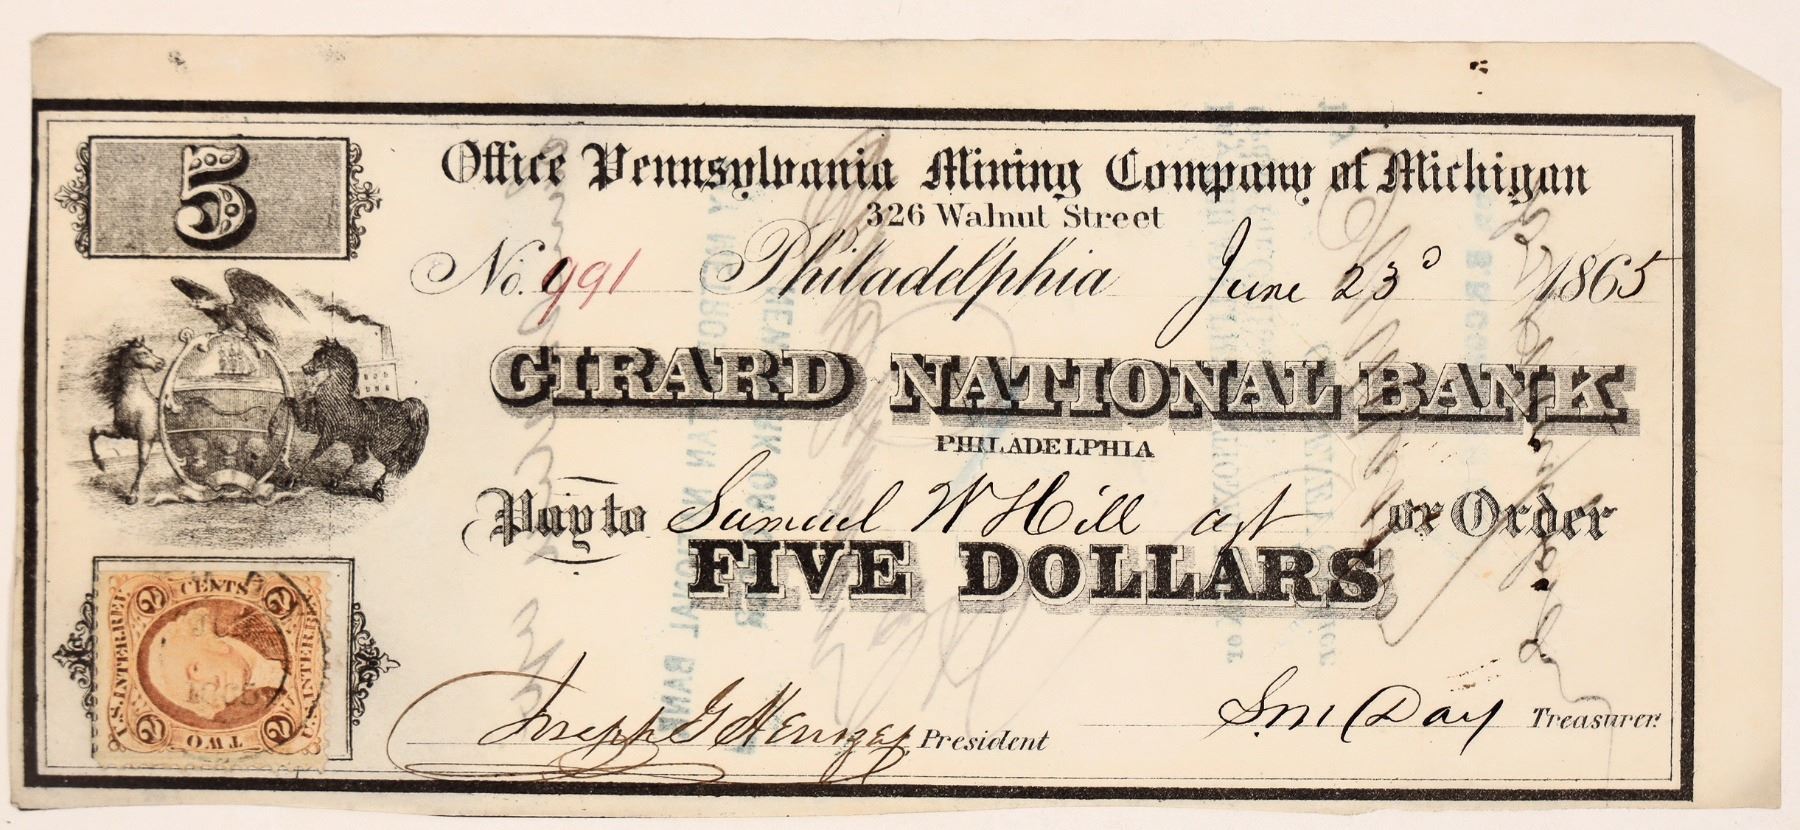 5
Office Pennsylvania Mining Company of Michigan
326 Walnut Street
No. 991 Philadelphia June 23d 1865
GIRARD NATIONAL BANK
PHILADELPHIA
Pay to Samuel W Hill agt or Order
FIVE DOLLARS
2 CENTS 2
U.S. INTER. REV.
U.S. INTER. REV.
2 TWO 2
Joseph G President
S. M. Day Treasurer